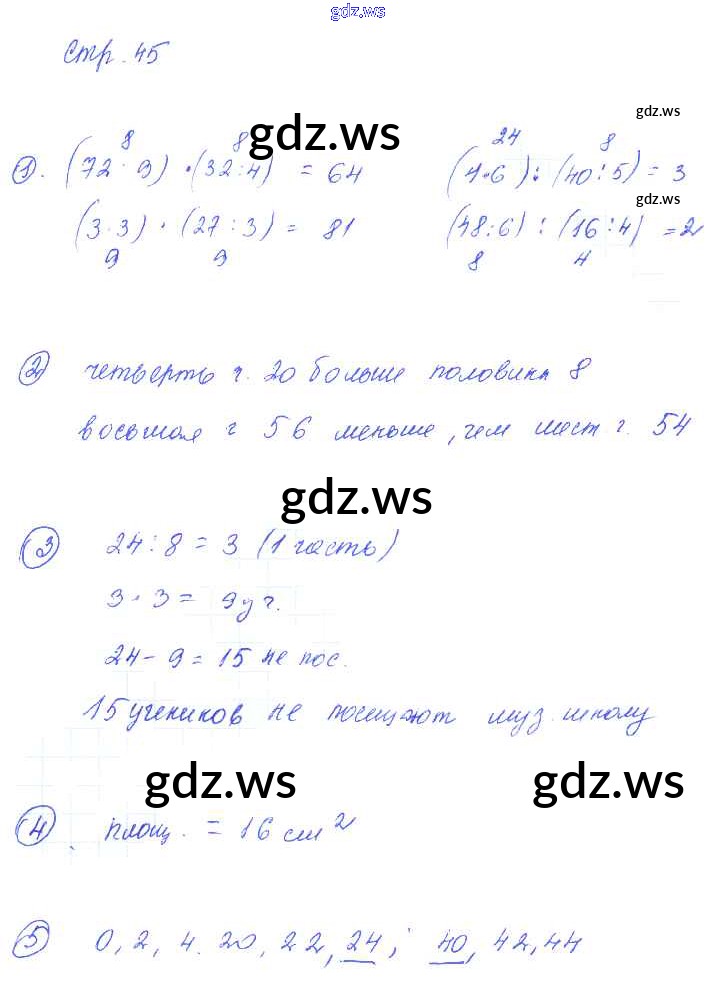 gdz.ws
Стр. 45
gdz.ws
gdz.ws
8 8 24 8
1. (72:9) · (32:4) = 64 (4·6) : (40:5) = 3
gdz.ws
(3·3) · (27:3) = 81 (48:6) : (16:4) = 2
9 9 8 4
2 четверть ч. 20 больше половины 8
восьмая ч 56 меньше, чем шест ч. 54
gdz.ws
3 24:8 = 3 (1 часть)
3·3 = 9 уч.
24 - 9 = 15 не пос.
15 учеников не посещают муз. школу
gdz.ws gdz.ws
4. площ. = 16 см²
5 0, 2, 4. 20, 22, 24; 40, 42, 44